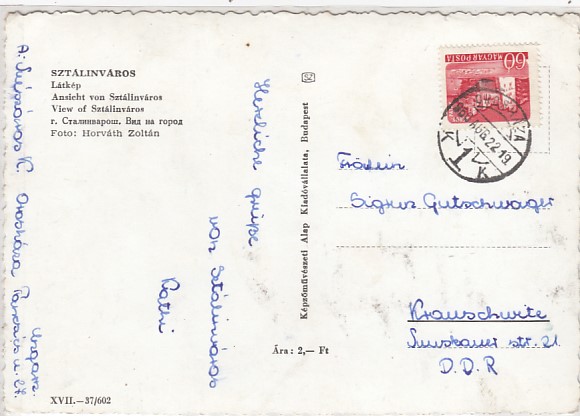 SZTÁLINVÁROS
Látkép
Ansicht von Sztálinváros
View of Sztálinváros
г. Сталинварош. Вид на город
Foto: Horváth Zoltán
Herzliche grüße
von Sztálinváros
Kathi
K.
Orosháza
u. 27.
Ungarn.
Képzőművészeti Alap Kiadóvállalata, Budapest
MAGYAR POSTA
60
22-19
1
K K
Fräulein
Gutschwager
Krauschwitz
str. 21
D.D.R
Ára: 2,— Ft
XVII.—37/602